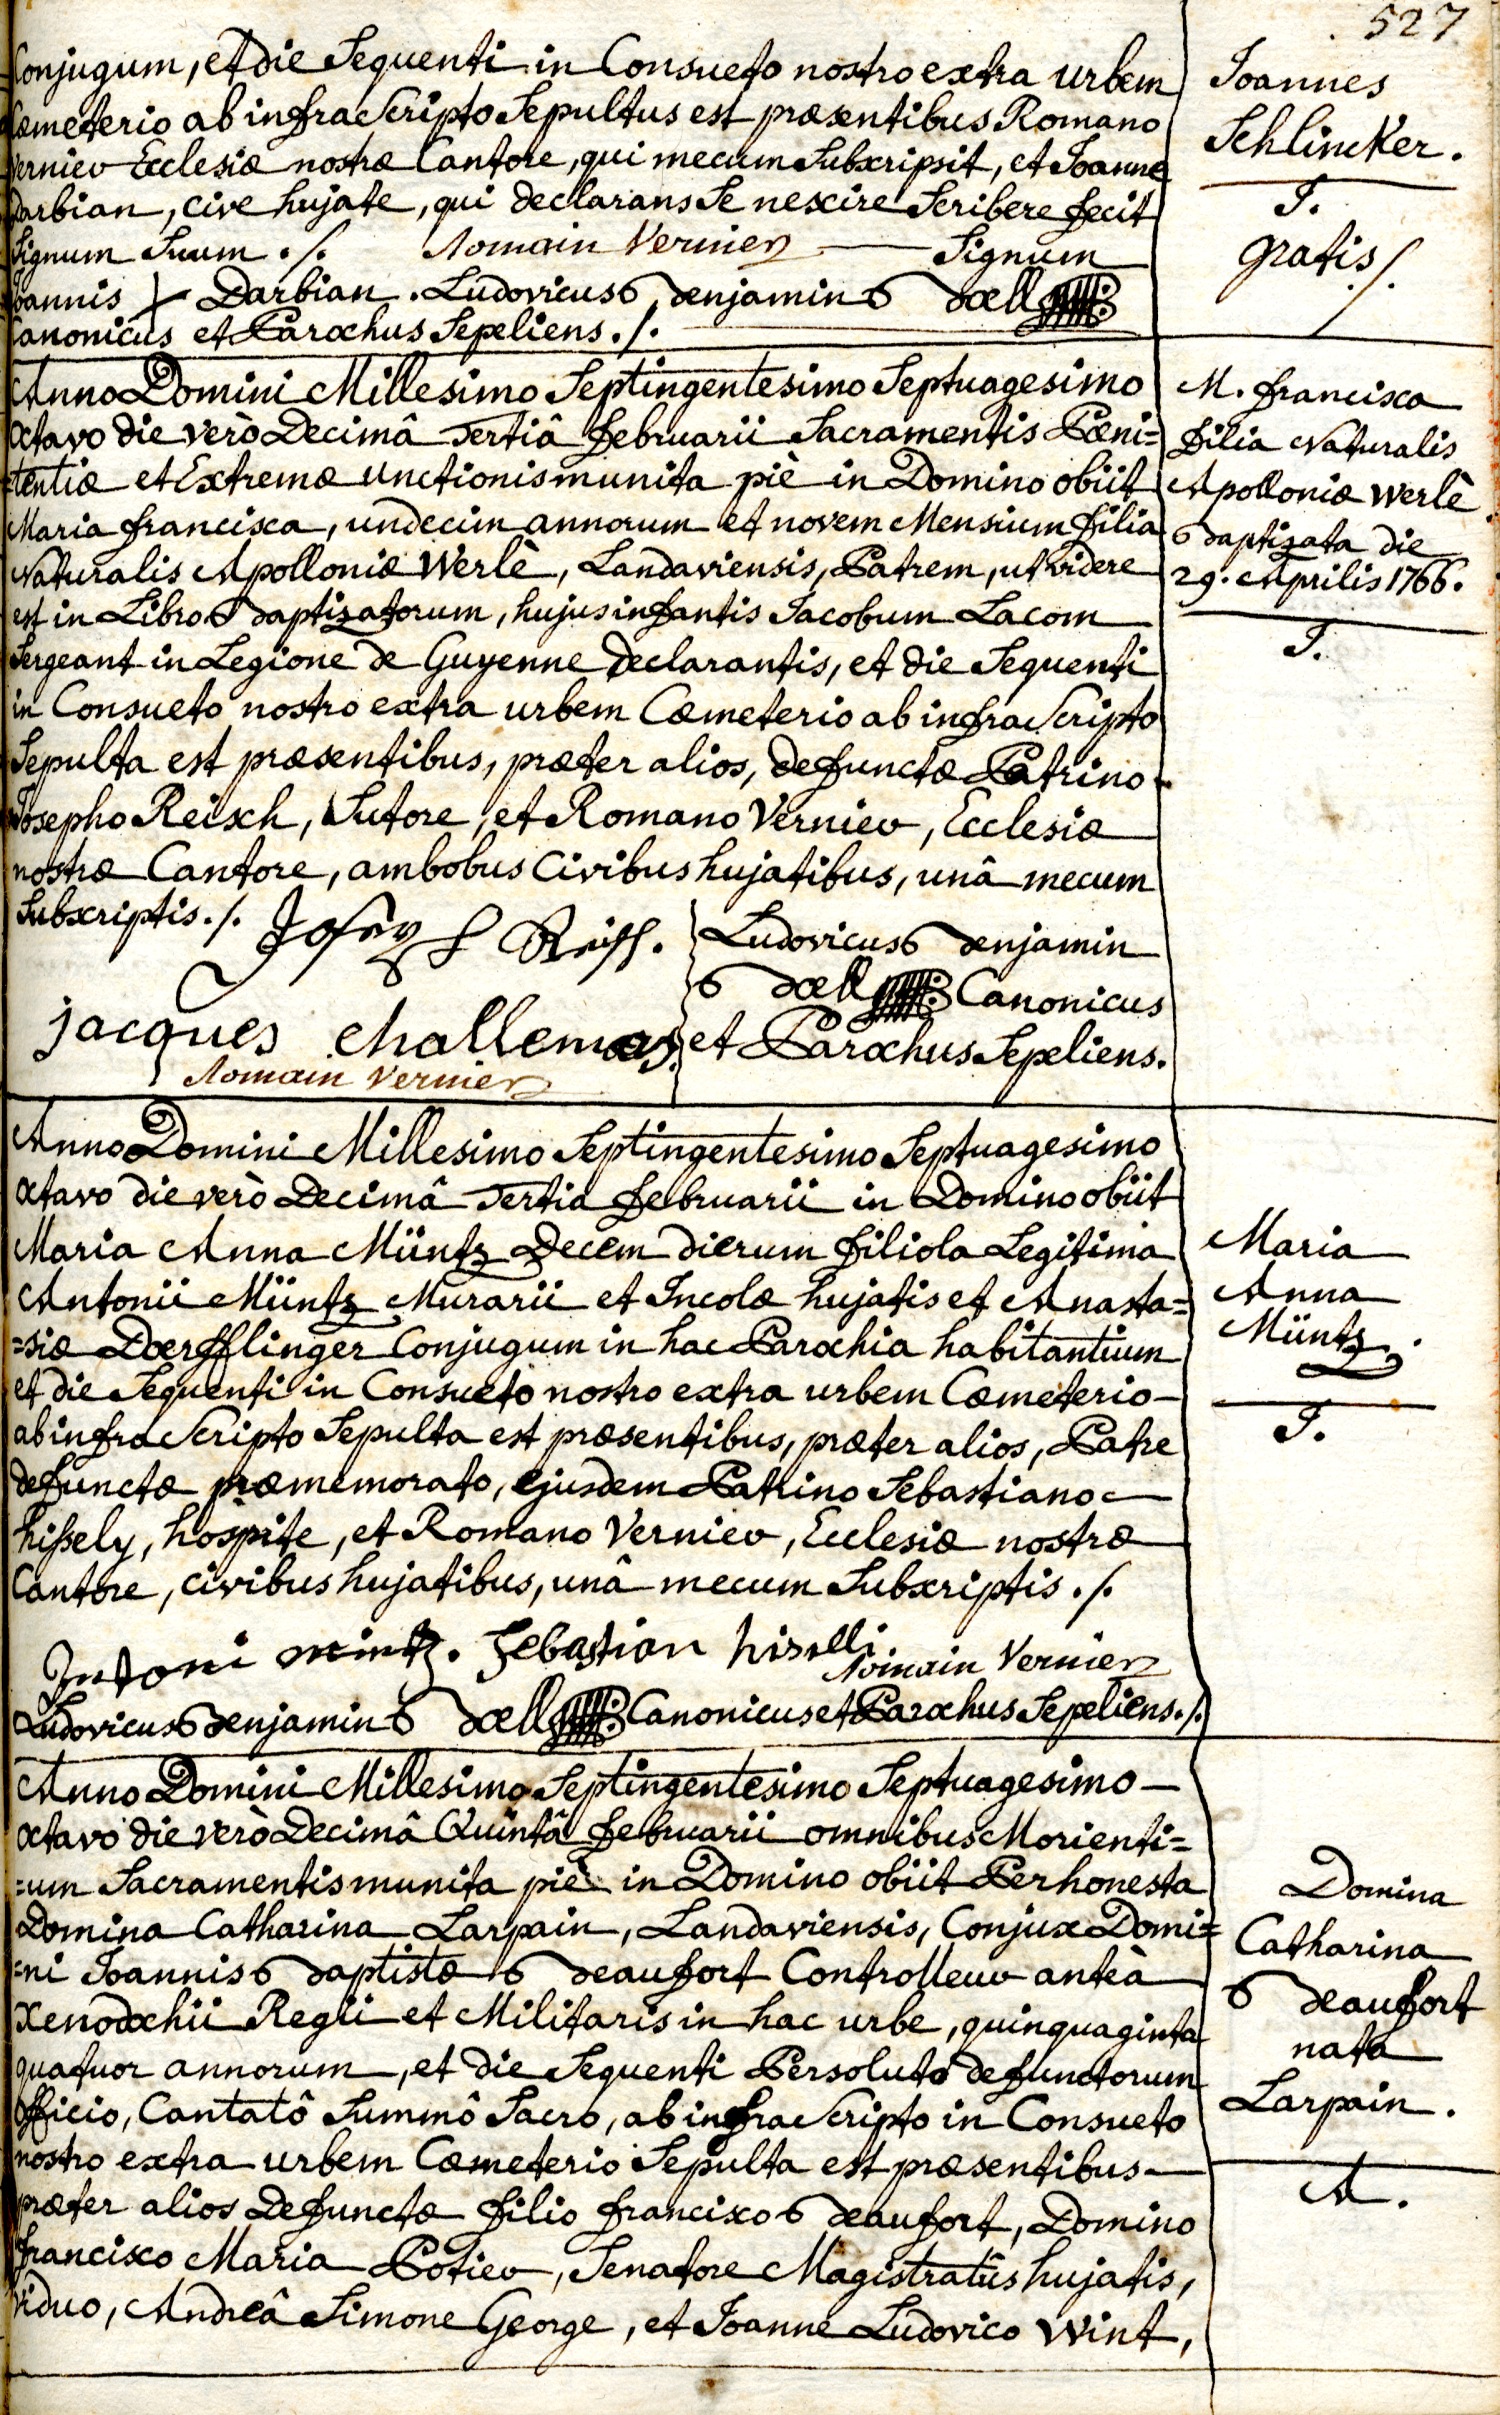 527
Conjugum, et die Sequenti in Consueto nostro extra urbem
Cœmeterio ab infra Scripto Sepultus est præsentibus Romano
Vernier Ecclesiæ nostræ Cantore, qui mecum Subscripsit, et Joanne
Darbian, cive hujate, qui declarans Se nescire Scribere fecit
Signum Suum ./. Romain Vernier — Signum
Joannis + Darbian. Ludovicus Benjamin Boell
Canonicus et Parochus Sepeliens ./.
Joannes
Schlincker.
J.
gratis ./.
Anno Domini Millesimo Septingentesimo Septuagesimo
octavo die verò Decimâ Tertiâ februarii Sacramentis Pœni=
=tentiæ et Extremæ unctionis munita piè in Domino obiit
Maria francisca, undecim annorum et novem Mensium filia
Naturalis Apolloniæ Werlè, Landaviensis, Patrem, ut videre
est in Libro Baptizatorum, hujus infantis Jacobum Lacom
Sergeant in Legione de Guyenne declarantis, et die Sequenti
in Consueto nostro extra urbem Cœmeterio ab infra Scripto
Sepulta est præsentibus, præter alios, defunctæ Patrino
Josepho Reisch, Sutore, et Romano Vernier, Ecclesiæ
nostræ Cantore, ambobus Civibus hujatibus, unâ mecum
Subscriptis ./. Joseph Reisch.
Ludovicus Benjamin
Boell Canonicus
et Parochus Sepeliens.
jacques
Romain Vernier
M. francisca
filia Naturalis
Apolloniæ Werlè
Baptizata die
29. Aprilis 1766.
J.
Anno Domini Millesimo Septingentesimo Septuagesimo
octavo die verò Decimâ Tertia februarii in Domino obiit
Maria Anna Müntz Decem dierum filiola Legitima
Antonii Müntz Murarii et Incolæ hujatis et Anasta=
=siæ Doerfflinger Conjugum in hac Parochia habitantium
et die Sequenti in Consueto nostro extra urbem Cœmeterio
ab infra Scripto Sepulta est præsentibus, præter alios, Patre
defunctæ præmemorato, ejusdem Patrino Sebastiano
hissely, hospite, et Romano Vernier, Ecclesiæ nostræ
Cantore, civibus hujatibus, unâ mecum Subscriptis ./.
Antoni mintz. Sebastian hiselli. Romain Vernier
Ludovicus Benjamin Boell Canonicus et Parochus Sepeliens ./.
Maria
Anna
Müntz.
J.
Anno Domini Millesimo Septingentesimo Septuagesimo
octavo die verò Decimâ Quintâ februarii omnibus Morienti=
=um Sacramentis munita piè in Domino obiit Perhonesta
Domina Catharina Larpain, Landaviensis, Conjux Domi=
=ni Joannis Baptistæ Beaufort Controlleur anteà
Xenodochii Regii et Militaris in hac urbe, quinquaginta
quatuor annorum, et die Sequenti Persoluto defunctorum
officio, Cantatô Summô Sacro, ab infra Scripto in Consueto
nostro extra urbem Cœmeterio Sepulta est præsentibus
præter alios Defunctæ filio francisco Beaufort, Domino
francisco Maria Potier, Senatore Magistratûs hujatis,
viduo, Andreâ Simone George, et Joanne Ludovico Wint,
Domina
Catharina
Beaufort
nata
Larpain.
A.